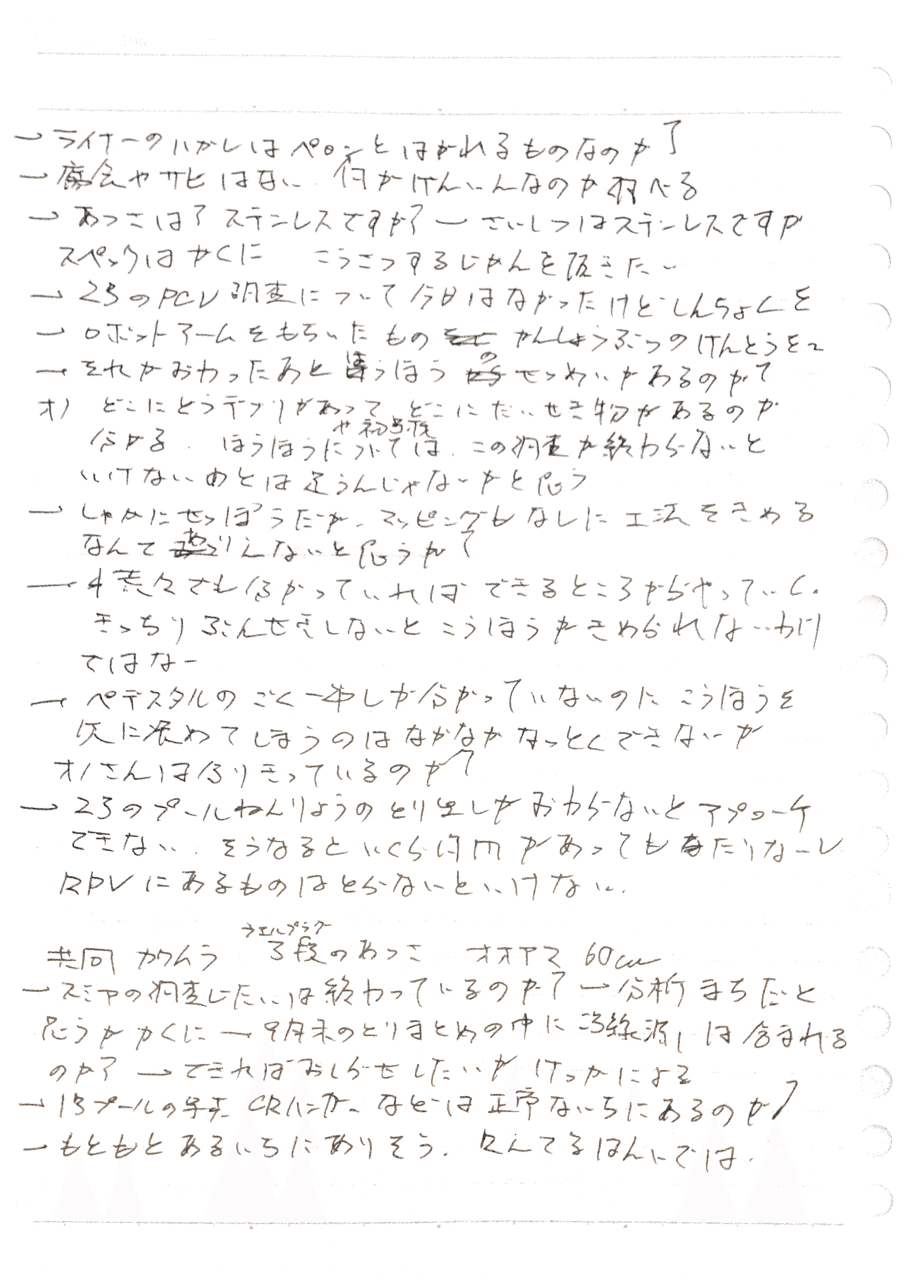 → ライナーのはがしはペロンとはがれるものなのか？
→ 腐食やサビはない 何がげんいんなのか 調べる
→ あつさは？ステンレスですか？→ ざいしつはステンレスですが
スペックはかくに こうさつするじゃんを
→ 23のPCV調査について今日はなかったけどしんちょくを
→ ロボットアームをもちいたもの かんしょうぶつのけんとうを
→ それがおわったあと違うほうの せつめいがあるのか？
オノ どこにどうデブリがあって、どこにたいせき物があるのか
分かる. ほうほうについては、この調査が終わらないと
や初号機
いけない あとは違うんじゃないかと思う
→ しゃかにせっぽうだが、マッピングもなしに工法をきめる
なんてありえないと思うが？
→ 荒々でも分かっていればできるところからやっていく.
きっちりぶんせきしないとこうほうがきめられないわけ
ではない
→ ペデスタルのごく一部しか分かっていないのにこうほうを
先に決めてしまうのはなかなかなっとくできないが
オノさんは分りきっているのか？
→ 23のプールねんりょうのとり出しがおわらないとアプローチ
できない. そうなるといくら何mmがあってもあたりない
RPVにあるものはとらないといけない.
→エルプラグ
共同 カワムラ 3段のあつさ オオヤマ 60cm
→ スミアの調査じたいは終わっているのか？→ 分析まちだと
思うが かくに → 9月末のとりまとめの中に「線源」は含まれる
のか？ → できればおしらせしたいが けっかによる
→ 13プールの写真 CRハンガーなどは正常ないちにあるのか？
→ もともとあるいちにありそう. 見てるはんいでは.